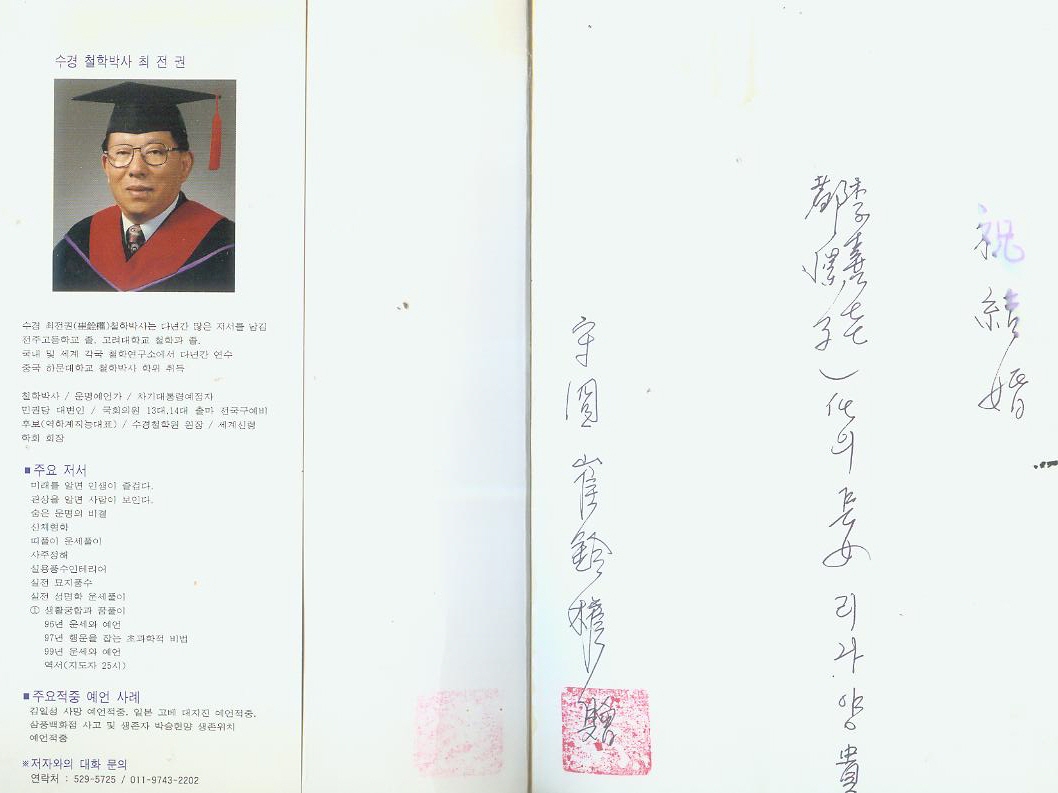 수경 철학박사 최 전 권
수경 최전권(崔銓權)철학박사는 다년간 많은 저서를 남김
전주고등학교 졸, 고려대학교 철학과 졸,
국내 및 세계 각국 철학연구소에서 다년간 연수
중국 하문대학교 철학박사 학위 취득
철학박사 / 운명예언가 / 차기대통령예정자
민권당 대변인 / 국회의원 13대,14대 출마 전국구예비
후보(역학계지능대표) / 수경철학원 원장 / 세계신령
학회 회장
■ 주요 저서
미래를 알면 인생이 즐겁다.
관상을 알면 사람이 보인다.
숨은 운명의 비결
신체현화
띠풀이 운세풀이
사주정해
실용풍수인테리어
실전 묘지풍수
실전 성명학 운세풀이
① 생활궁합과 꿈풀이
96년 운세와 예언
97년 행운을 잡는 초과학적 비법
99년 운세와 예언
역서(지도자 25시)
■ 주요적중 예언 사례
김일성 사망 예언적중, 일본 고베 대지진 예언적중,
삼풍백화점 사고 및 생존자 박승현양 생존위치
예언적중
※저자와의 대화 문의
연락처 : 529-5725 / 011-9743-2202
祝結婚
李喜
都
子
의 長女 리라양 貴
守 崔銓權 贈